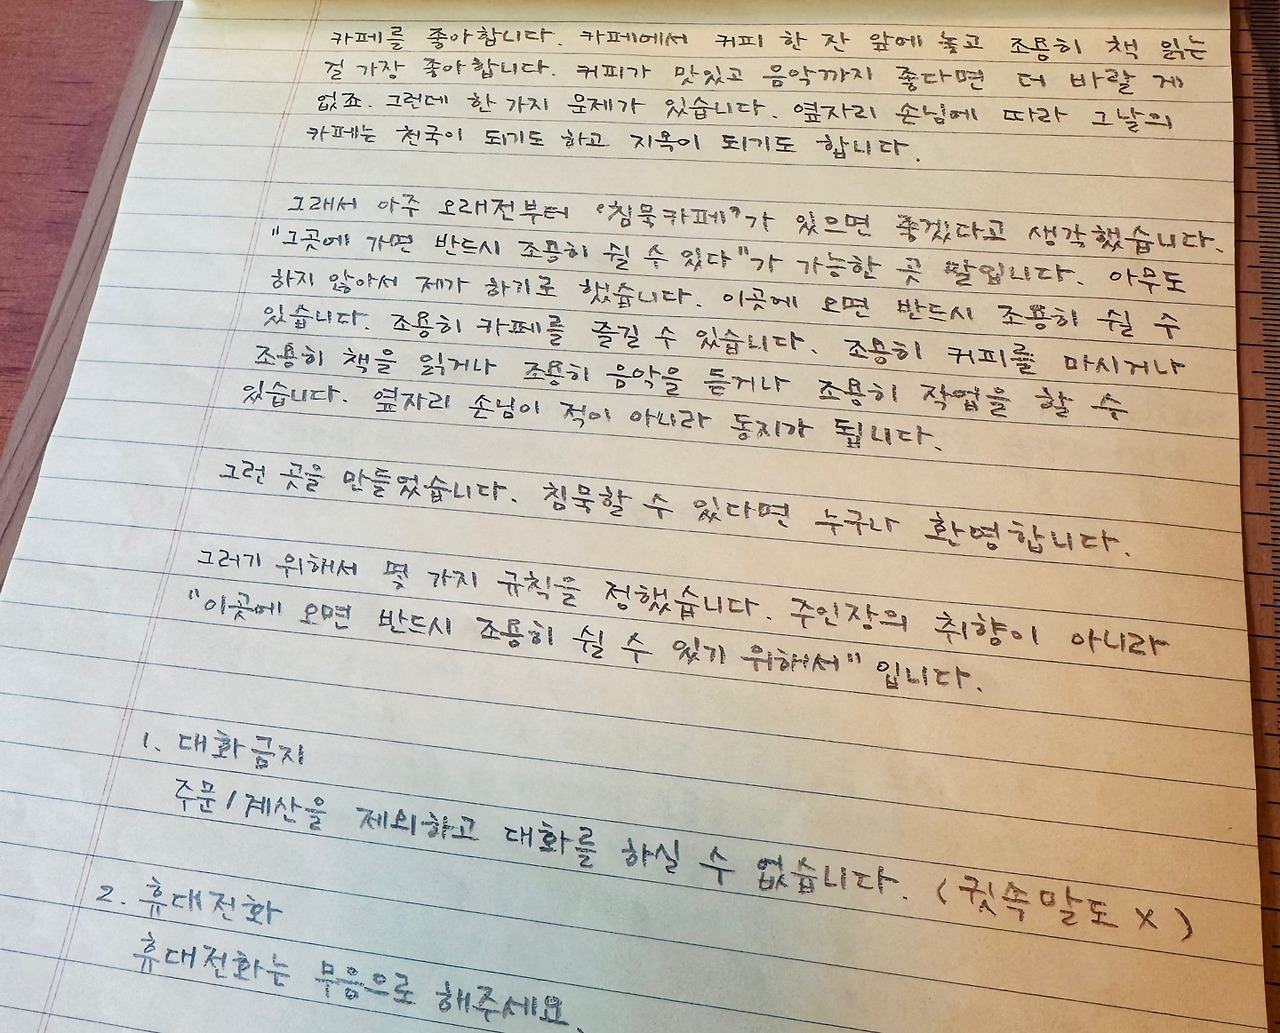 카페를 좋아합니다. 카페에서 커피 한 잔 앞에 놓고 조용히 책 읽는
걸 가장 좋아합니다. 커피가 맛있고 음악까지 좋다면 더 바랄 게
없죠. 그런데 한 가지 문제가 있습니다. 옆자리 손님에 따라 그날의
카페는 천국이 되기도 하고 지옥이 되기도 합니다.
그래서 아주 오래전부터 "침묵카페"가 있으면 좋겠다고 생각했습니다.
"그곳에 가면 반드시 조용히 쉴 수 있다"가 가능한 곳 말입니다. 아무도
하지 않아서 제가 하기로 했습니다. 이곳에 오면 반드시 조용히 쉴 수
있습니다. 조용히 카페를 즐길 수 있습니다. 조용히 커피를 마시거나
조용히 책을 읽거나 조용히 음악을 듣거나 조용히 작업을 할 수
있습니다. 옆자리 손님이 적이 아니라 동지가 됩니다.
그런 곳을 만들었습니다. 침묵할 수 있다면 누구나 환영합니다.
그러기 위해서 몇 가지 규칙을 정했습니다. 주인장의 취향이 아니라
"이곳에 오면 반드시 조용히 쉴 수 있기 위해서" 입니다.
1. 대화금지
주문/계산을 제외하고 대화를 하실 수 없습니다. (귓속말도 X)
2. 휴대전화
휴대전화는 무음으로 해주세요.